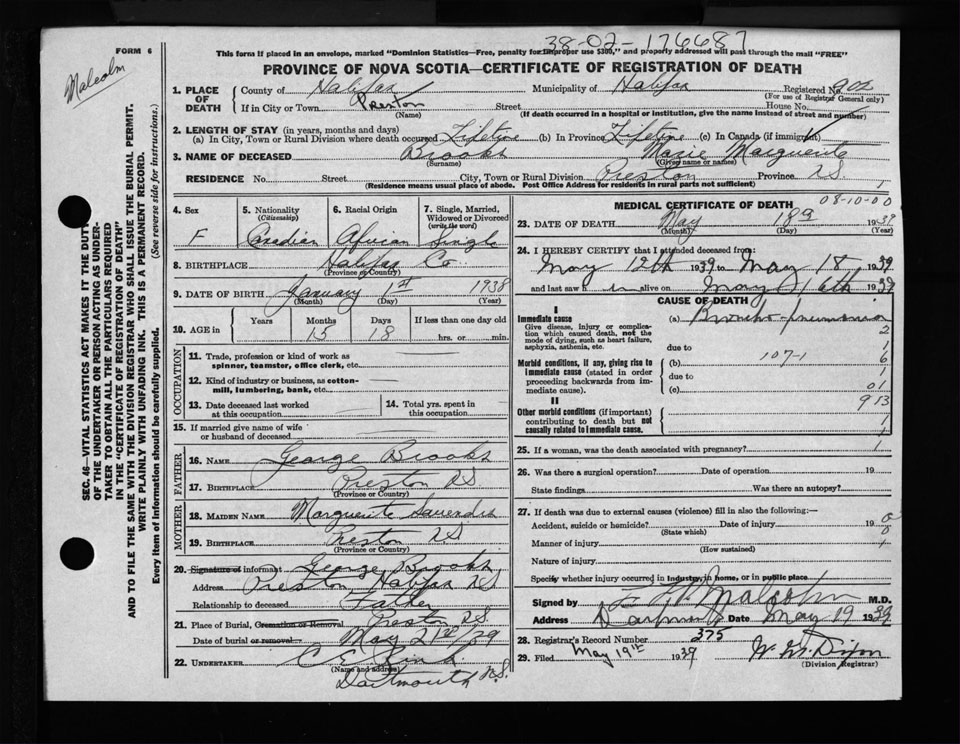 38-02-176687
FORM 6
Malcolm
This form if placed in an envelope, marked "Dominion Statistics—Free, penalty for improper use $300," and properly addressed will pass through the mail "FREE"
PROVINCE OF NOVA SCOTIA—CERTIFICATE OF REGISTRATION OF DEATH
SEC. 46—VITAL STATISTICS ACT MAKES IT THE DUTY
OF THE UNDERTAKER OR PERSON ACTING AS UNDER-
TAKER TO OBTAIN ALL THE PARTICULARS REQUIRED
IN THE "CERTIFICATE OF REGISTRATION OF DEATH"
AND TO FILE THE SAME WITH THE DIVISION REGISTRAR WHO SHALL ISSUE THE BURIAL PERMIT.
WRITE PLAINLY WITH UNFADING INK. THIS IS A PERMANENT RECORD.
Every item of Information should be carefully supplied. (See reverse side for instructions.)
1. PLACE OF DEATH County of Halifax Municipality of Halifax Registered No. 202
(For use of Registrar General only)
If in City or Town Preston Street House No.
(Name) (If death occurred in a hospital or institution, give the name instead of street and number)
2. LENGTH OF STAY (in years, months and days)
(a) In City, Town or Rural Division where death occurred Lifetime (b) In Province Lifetime (c) In Canada (if immigrant)
3. NAME OF DECEASED Brooks Marie Marguerite
(Surname) (Given name or names)
RESIDENCE No. Street City, Town or Rural Division Preston Province N.S.
(Residence means usual place of abode. Post Office Address for residents in rural parts not sufficient)
4. Sex 5. Nationality (Citizenship) 6. Racial Origin 7. Single, Married, Widowed or Divorced (write the word)
F Canadian African Single
8. BIRTHPLACE Halifax Co
(Province or Country)
9. DATE OF BIRTH January 1st 1938
(Month) (Day) (Year)
10. AGE in Years Months Days If less than one day old
15 18 hrs. or min.
OCCUPATION
11. Trade, profession or kind of work as spinner, teamster, office clerk, etc.
12. Kind of industry or business, as cotton-mill, lumbering, bank, etc.
13. Date deceased last worked at this occupation
14. Total yrs. spent in this occupation
15. If married give name of wife or husband of deceased
FATHER
16. Name George Brooks
17. Birthplace Preston N.S.
(Province or Country)
MOTHER
18. Maiden Name Marguerite
19. Birthplace Preston N.S.
(Province or Country)
20. Signature of informant George Brooks
Address Preston Halifax N.S.
Relationship to deceased Father
21. Place of Burial, Cremation or Removal Preston N.S.
Date of burial or removal May 21st/39
22. UNDERTAKER C E
(Name and address)
Dartmouth N.S.
MEDICAL CERTIFICATE OF DEATH 08-10-00
23. DATE OF DEATH May 18th 1939
(Month) (Day) (Year)
24. I HEREBY CERTIFY that I attended deceased from:
May 12th 1939 to May 18 1939
and last saw alive on May 16th 1939
CAUSE OF DEATH
I
Immediate cause (a) Broncho-pneumonia
Give disease, injury or complication which caused death, not the mode of dying, such as heart failure, asphyxia, asthenia, etc.
due to
Morbid conditions, if any, giving rise to immediate cause (stated in order proceeding backwards from immediate cause).
(b) 107-1
due to
(c)
2
1
6
1
01
9 13
1
1
II
Other morbid conditions (if important) contributing to death but not causally related to Immediate cause.
25. If a woman, was the death associated with pregnancy? 1
26. Was there a surgical operation? Date of operation 19
State findings Was there an autopsy?
27. If death was due to external causes (violence) fill in also the following:—
Accident, suicide or homicide? Date of injury 19 0
(State which) 0
Manner of injury 1
(How sustained)
Nature of injury
Specify whether injury occurred in industry, in home, or in public place
Signed by Malcolm M.D.
Address Date May 19 1939
28. Registrar's Record Number 375
29. Filed May 19th 1939 W. M. Dixon
(Division Registrar)